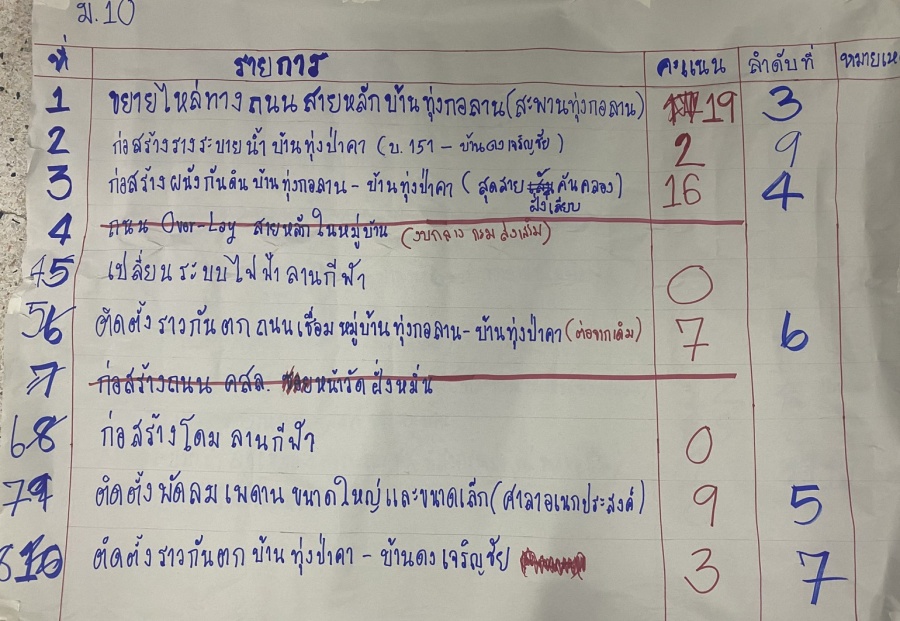 ม.10
ที่ รายการ คะแนน ลำดับที่ หมายเห
1 ขยายไหล่ทาง ถนน สายหลักบ้านทุ่งกอลาน (สะพานทุ่งกอลาน) 19 3
2 ก่อสร้างรางระบายน้ำ บ้านทุ่งป่าคา (บ.151 - บ้านดงเจริญชัย) 2 9
3 ก่อสร้างผนังกันดินบ้านทุ่งกอลาน - บ้านทุ่งป่าคา (สุดสาย คันคลอง) 16 4
ฝั่งเลียบ
4 ถนน Over-Lay สายหลักในหมู่บ้าน (งบกลาง กรม ส่งเสริม)
5 เปลี่ยนระบบไฟฟ้าลานกีฬา 0
56 ติดตั้งราวกันตก ถนนเชื่อมหมู่บ้านทุ่งกอลาน - บ้านทุ่งป่าคา (ต่อจากเดิม) 7 6
7 ก่อสร้างถนน คสล. หน้าวัดฝั่งหมื่น
68 ก่อสร้างโดมลานกีฬา 0
79 ติดตั้งพัดลมเพดาน ขนาดใหญ่และขนาดเล็ก (ศาลาอเนกประสงค์) 9 5
810 ติดตั้งราวกันตกบ้านทุ่งป่าคา - บ้านดงเจริญชัย 3 7